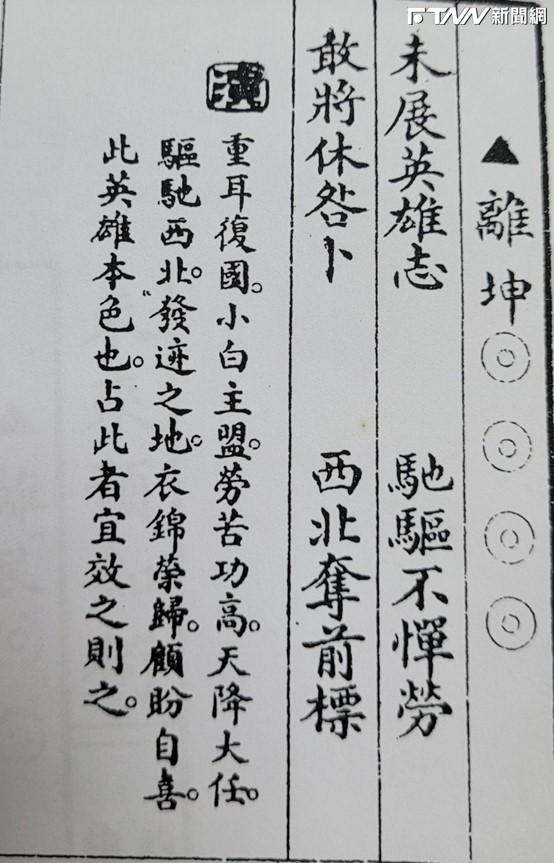 FTNN新聞網
▲離坤◎◎◎◎
未展英雄志 馳驅不憚勞
敢將休咎卜 西北奪前標
演
重耳復國。小白主盟。勞苦功高。天降大任。
驅馳西北。發迹之地。衣錦榮歸。顧盼自喜。
此英雄本色也。占此者宜效之則之。